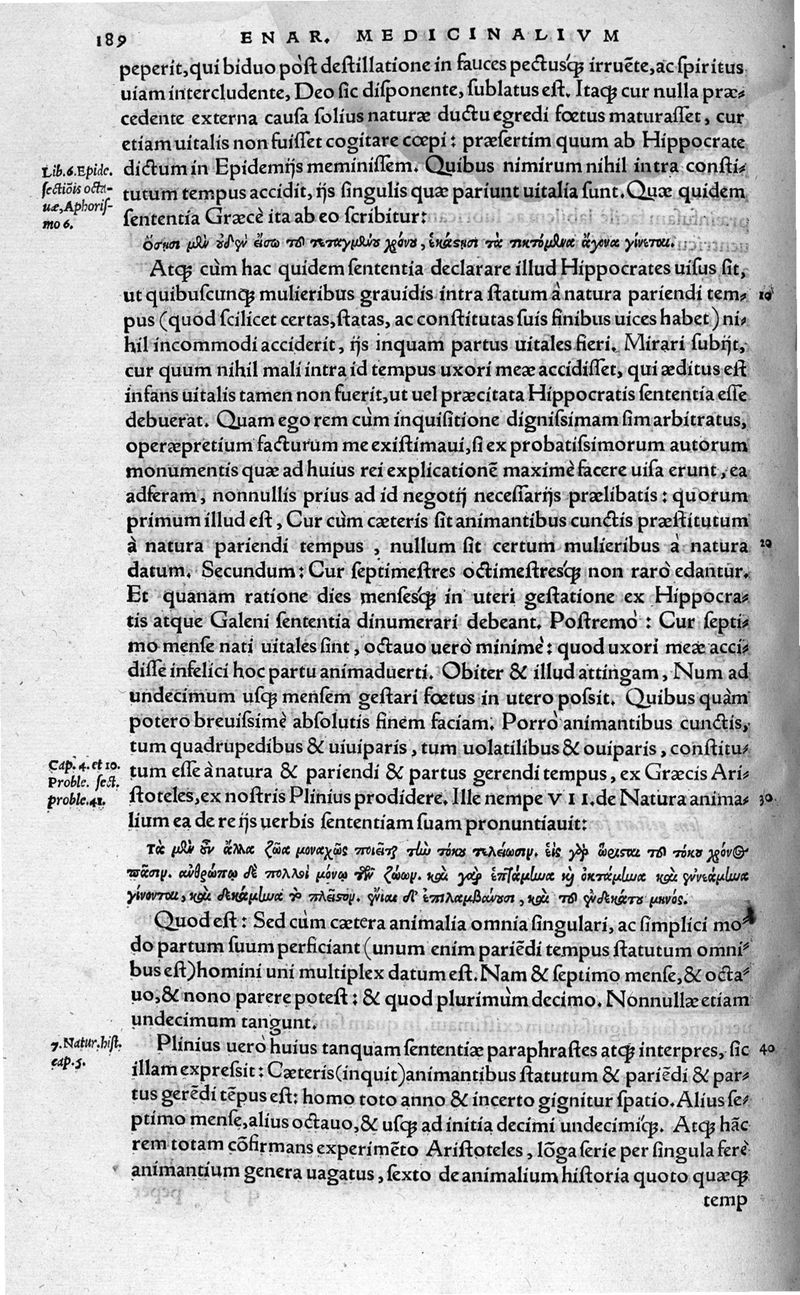 189 ENAR. MEDICINALIVM
peperit, qui biduo pòst destillatione in fauces pectusq́; irruẽte, ac spiritus
uiam intercludente, Deo sic disponente, sublatus est. Itaq; cur nulla præ-
cedente externa causa solius naturæ ductu egredi fœtus maturasset, cur
etiam uitalis non fuisset cogitare cœpi: præsertim quum ab Hippocrate
Lib. 6. Epide.
sectiõis octa-
uæ, Aphoris-
mo 6.
dictum in Epidemijs meminissem. Quibus nimirum nihil intra consti-
tutum tempus accidit, ijs singulis quæ pariunt uitalia sunt. Quæ quidem
sententia Græcè ita ab eo scribitur:
Ὁσῃσι μὲν οὐδὲν εἴσω τοῦ τεταγμένου χρόνου, ἑκάστῃσι τὰ τικτόμενα γίνεται.
Atq; cùm hac quidem sententia declarare illud Hippocrates uisus sit,
ut quibuscunq; mulieribus grauidis intra statum à natura pariendi tem- 10
pus (quod scilicet certas, statas, ac constitutas suis finibus uices habet) ni-
hil incommodi acciderit, ijs inquam partus uitales fieri. Mirari subijt,
cur quum nihil mali intra id tempus uxori meæ accidisset, qui æditus est
infans uitalis tamen non fuerit, ut uel præcitata Hippocratis sententia esse
debuerat. Quam ego rem cùm inquisitione dignissimam sim arbitratus,
operæpretium facturum me existimaui, si ex probatissimorum autorum
monumentis quæ ad huius rei explicationẽ maximè facere uisa erunt, ea
adferam, nonnullis prius ad id negotij necessarijs prælibatis: quorum
primum illud est, Cur cùm cæteris sit animantibus cunctis præstitutum
à natura pariendi tempus, nullum sit certum mulieribus à natura 20
datum. Secundum: Cur septimestres octimestresq́; non rarò edantur.
Et quanam ratione dies mensesq́; in uteri gestatione ex Hippocra-
tis atque Galeni sententia dinumerari debeant. Postremò: Cur septi-
mo mense nati uitales sint, octauo uerò minimè: quod uxori meæ acci-
disse infelici hoc partu animaduerti. Obiter & illud attingam, Num ad
undecimum usq; mensem gestari fœtus in utero possit. Quibus quàm
potero breuissimè absolutis finem faciam. Porrò animantibus cunctis,
tum quadrupedibus & uiuiparis, tum uolatilibus & ouiparis, constitu-
Cap. 4. et 10.
Proble. sect.
proble. 41.
tum esse à natura & pariendi & partus gerendi tempus, ex Græcis Ari-
stoteles, ex nostris Plinius prodidere. Ille nempe VII. de Natura anima- 30
lium ea de re ijs uerbis sententiam suam pronuntiauit:
τὰ μὲν οὖν ἄλλα ζῶα μοναχῶς ποιεῖται τὴν τόκου τελείωσιν. εἷς γὰρ ὥρισται τοῦ τόκου χρόνος
πᾶσιν. ἀνθρώπῳ δὲ πολλοὶ μόνῳ τῶν ζώων. καὶ γὰρ ἑπτάμηνα καὶ ὀκτάμηνα καὶ ἐννεάμηνα
γίνονται, καὶ δεκάμηνα τὸ πλεῖσον. ἔνιαι δ' ἐπιλαμβάνουσι, καὶ τοῦ ἑνδεκάτου μηνός.
Quod est: Sed cùm cætera animalia omnia singulari, ac simplici mo-
do partum suum perficiant (unum enim pariẽdi tempus statutum omni-
bus est) homini uni multiplex datum est. Nam & septimo mense, & octa-
uo, & nono parere potest: & quod plurimùm decimo. Nonnullæ etiam
undecimum tangunt.
7. Natur. hist.
cap. 5.
Plinius uerò huius tanquam sententiæ paraphrastes atq; interpres, sic 40
illam expressit: Cæteris (inquit) animantibus statutum & pariẽdi & par-
tus gerẽdi tẽpus est: homo toto anno & incerto gignitur spatio. Alius se-
ptimo mense, alius octauo, & usq; ad initia decimi undecimiq́;. Atq; hãc
rem totam cõfirmans experimẽto Aristoteles, lõga serie per singula ferè
animantium genera uagatus, sexto de animalium historia quoto quæq;
temp